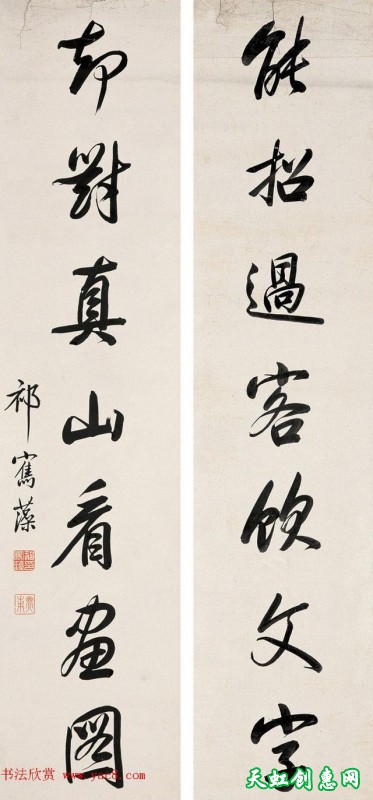 能招過客飲文字
却對真山看畫圖
祁寯藻
书法欣赏
天虹创惠网